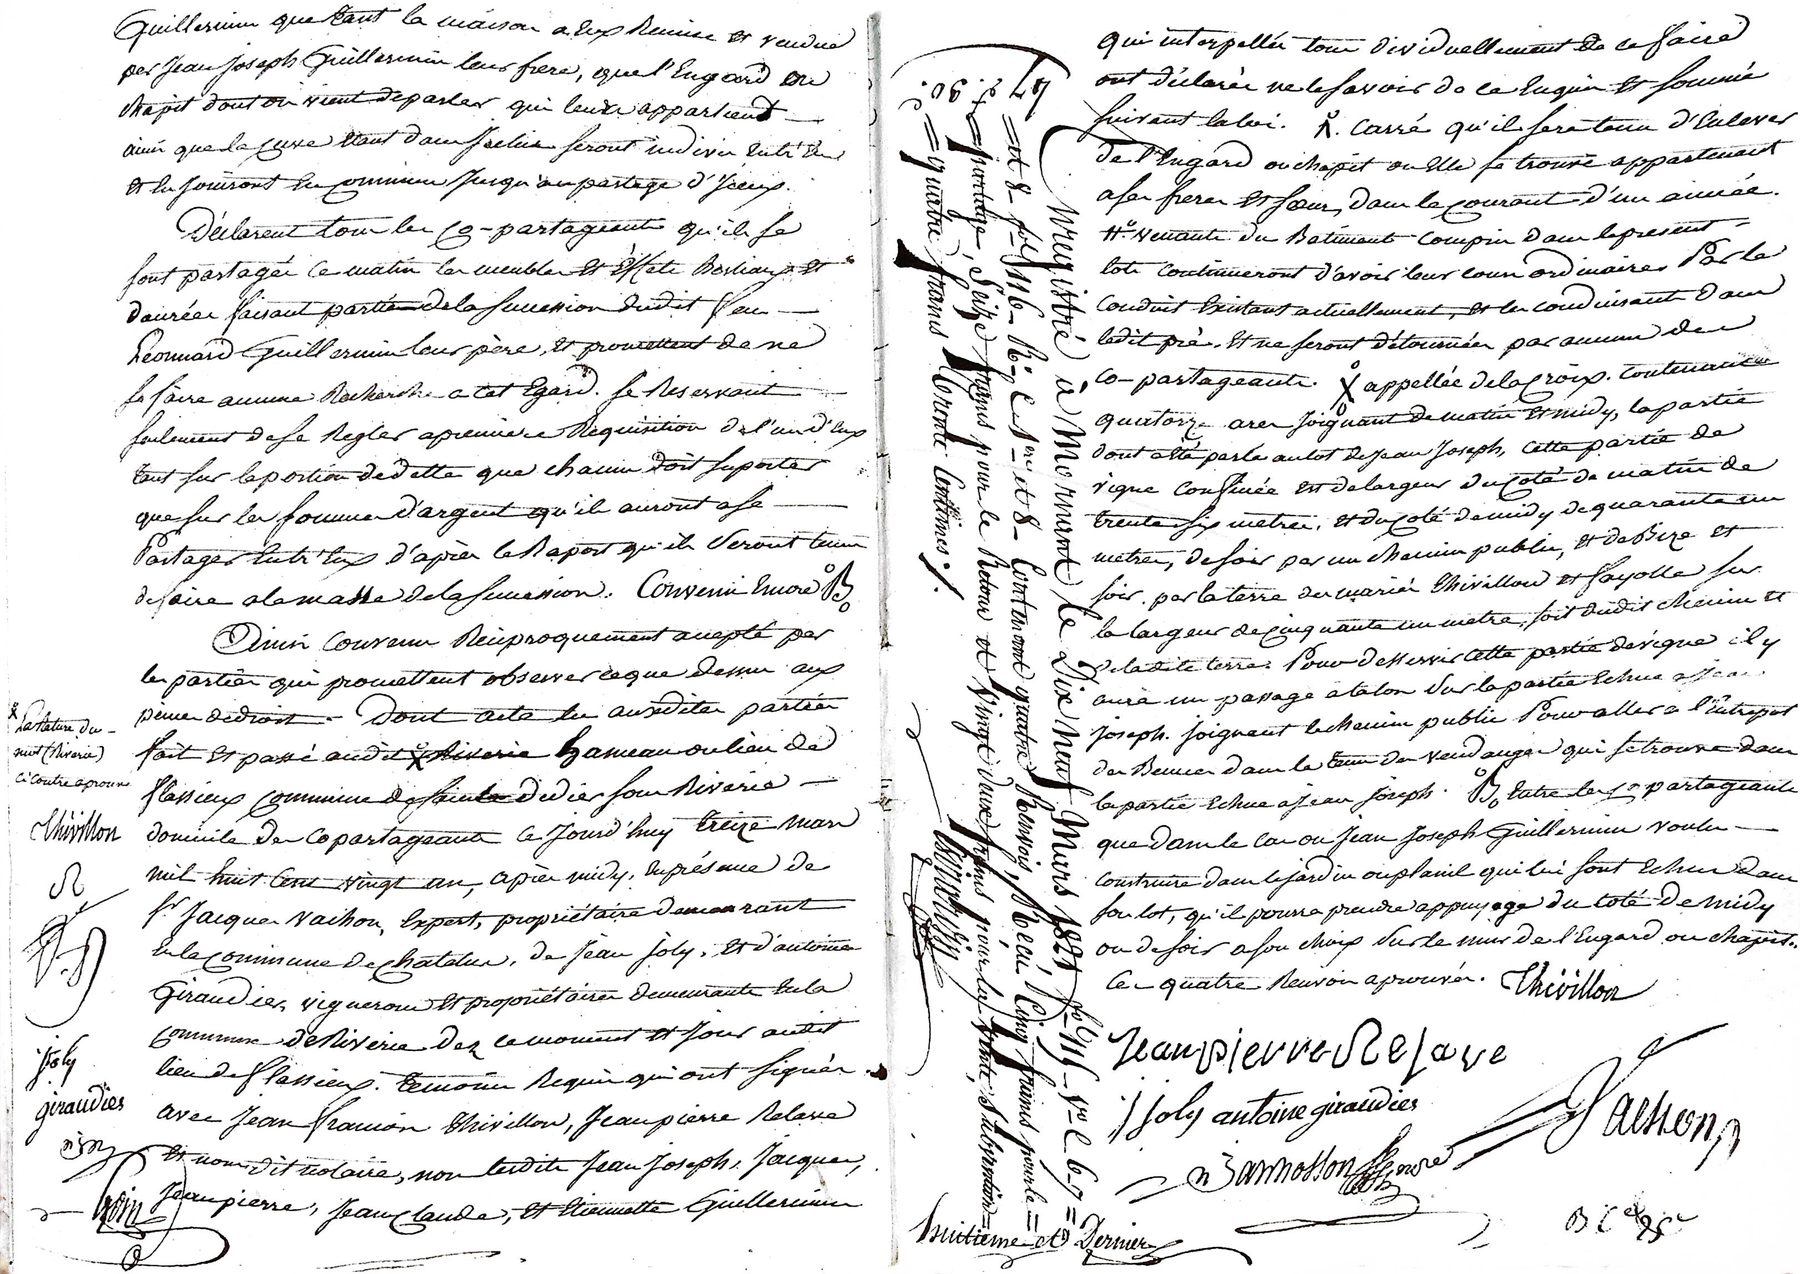 Guillermin que tant la maison a Eux Remise et vendue
par Jean Joseph Guillermin leur frere, que l'Engard ou
chapit dont on vient de parler qui leur appartient
ainsi que la cuve étant dans icelui seront indivis entr'eux
et en jouiront En commun jusqu'au partage d'Iceux.
Déclarent tous les Co-partageants qu'ils se
sont partagés ce matin les meubles et Effets Bestiaux et
danrées faisant partie de la succession dudit feu
Léonnard Guillermin leur père, et promettent de ne
se faire aucune Recherche a cet Egard. se Reservant
seulement de se Regler a premiere Requisition de l'un d'Eux
tant sur la portion de dette que chacun doit suporter
que sur les sommes d'argent qu'ils auront a se
Partager Entr'Eux d'après le Raport qu'ils seront tenus
de faire a la masse de la succession. Convenu Encore B
Ainsi Convenu Réciproquement accepté par
les parties qui promettent observer ce que dessus aux
peines de droit. Dont acte les susdites parties
fait et passé audit X Riverie hameau ou lieu de
flassieux commune de sainte didier sous Riverie
domicile des Copartageants ce jourd'huy treize mars
mil huit cent vingt un, après midy, En présence de
Sr Jacques Vachon, Expert, propriétaire demeurant
En la commune de Chatelus, de Jean Joly, et d'antoine
Giraudier, vignerons et propriétaires demeurants En la
commune de Riverie dez ce moment et jour audit
lieu de flassieux. temoins Requis qui ont signés
avec Jean francois Thivillon, Jean pierre Relave
et nous dit notaire, non lesdits Jean Joseph, Jacques,
Jean pierre, Jean Claude, et Etiennette Guillermin
X La Rature du
mot (Riverie)
ci contre aprouvé
Thivillon
R
joly
giraudier
qui interpellés tous dividuellement de ce faire
ont déclarés ne le savoir de ce Enquis et sommés
suivant la loi. X. Carré qu'il sera tenu d'Enlever
de l'Engard ou chapit ou Elle se trouve appartenant
a ses freres et sœur, dans le courant d'un année.
venants du Batiment compris dans le present
lots continueront d'avoir leur cours ordinaires Par les
conduits Existants actuellement, et les conduisants dans
ledit pré. Et ne seront détournés par aucun des
co-partageants. X appellée de la Croix. Contenance
quatorze ares joignant de matin et midy, la partie
dont a été parlé au lot de Jean Joseph, cette partie de
vigne confinée est de largeur du coté de matin de
trente six metres, et du coté de midy de quarante un
metres, de soir par un chemin public, et de Bize et
soir par la terre des mariés Thivillon et fayolle sur
la largeur de cinquante un metre, soit dudit chemin et
de ladite terre. Pour desservir cette partie de vigne il y
aura un passage a talon sur la partie Echue a Jean
Joseph. joignant le chemin public Pour aller a l'Entrepot
des Bennes dans le tems des vendanges qui se trouve dans
la partie Echue a Jean Joseph. B. Entre les co partageants
que dans le cas ou Jean Joseph Guillermin voulu
construire dans le jardin ou plani qui lui sont Echus dans
son lot, qu'il pourra prendre appuyage du coté de midy
ou de soir a son choix sur le mur de l'Engard ou chapit.
Ces quatre Renvois aprouvés. Thivillon
Jean pierre Relave
j joly antoine giraudier
Vachon
Huitieme et Dernier
Enregistré à Mornant le Dix neuf Mars 1821 fo 115 Vo C 6 7
et 8 fo 116 Ro C 1re et 8 Contenant quatre Renvois, Recu Cinq francs pour le
partage, Seize francs pour le Retour et Vingt deux francs pour la Vente, Subvention
quatre francs trente Centimes./.
47 f. 30 c